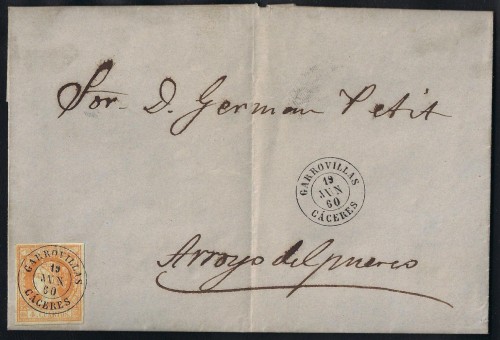 Sor. D. German Petit
GARROVILLAS
19
JUN
60
CÁCERES
Arroyo del Puerco
GARROVILLAS
19
JUN
60
CÁCERES